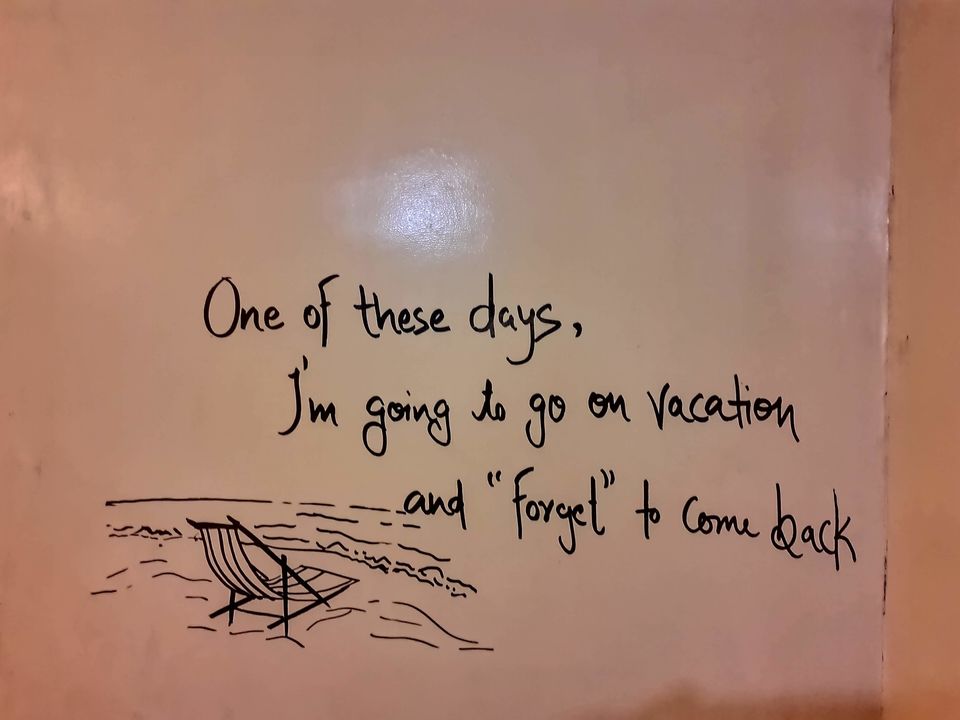 One of these days,
I'm going to go on vacation
and "forget" to come back